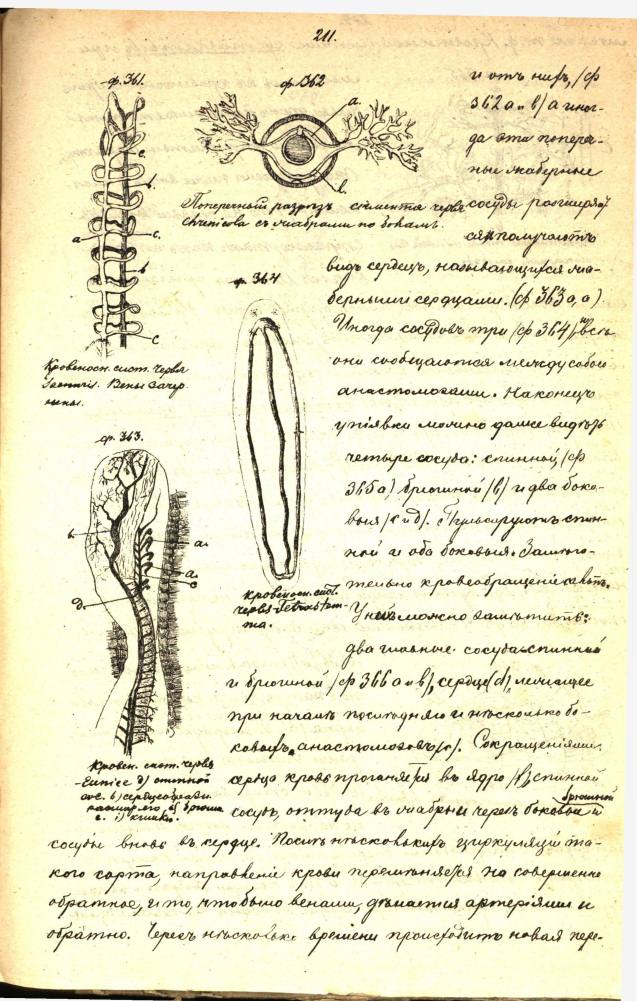 211.
ф. 361.
ф. 362
a.
b.
e.
b.
a
c.
b
c
Поперечный разрѣзъ сегмента червя
Arenicola съ жабрами по бокамъ.
Кровеносн. сист. червя
Saenuris. Вены зачер
нены.
и отъ нихъ, (ф
362 a и b) а иног-
да эти попереч-
ные жаберные
сосуды расширяют
ся и получаютъ
видъ сердецъ, называющихся жа-
берными сердцами. (ф 363 a, a).
Иногда сосудовъ три (ф 364) и всѣ
они сообщаются между собою
анастомозами. Наконецъ
у піявки можно даже видѣть
четыре сосуда: спинной, (ф
365 a) брюшной (b) и два боко-
выя (c и d). Пульсируютъ спин-
ной и оба боковыя. Замѣча-
тельно кровеобращеніе
У нихъ можно замѣтить:
два главные сосуда спинной
и брюшной (ф 366 a и b), сердце (d), лежащее
при началѣ послѣдняго и нѣсколько бо-
ковыхъ анастомозовъ (c). Сокращеніями
сердца кровь прогоняется въ ядро (f), спинной
сосудъ, оттуда въ жабры и черезъ боковые и брюшной
сосуды вновь въ сердце. Послѣ нѣсколькихъ циркуляцій та-
кого сорта, направленіе крови перемѣняется на совершенно
обратное, и то, что было венами, дѣлается артеріями и
обратно. Черезъ нѣсколько времени происходитъ новая пере-
ф. 364
Кровеносн. сист.
червя Tetrastem-
ma.
ф. 363.
b.
a.
a.
c
d
Кровен. сист. червя
Eunice d) спинной
сос. b)
расшир. его c) брюшн.
с. i) кишка.